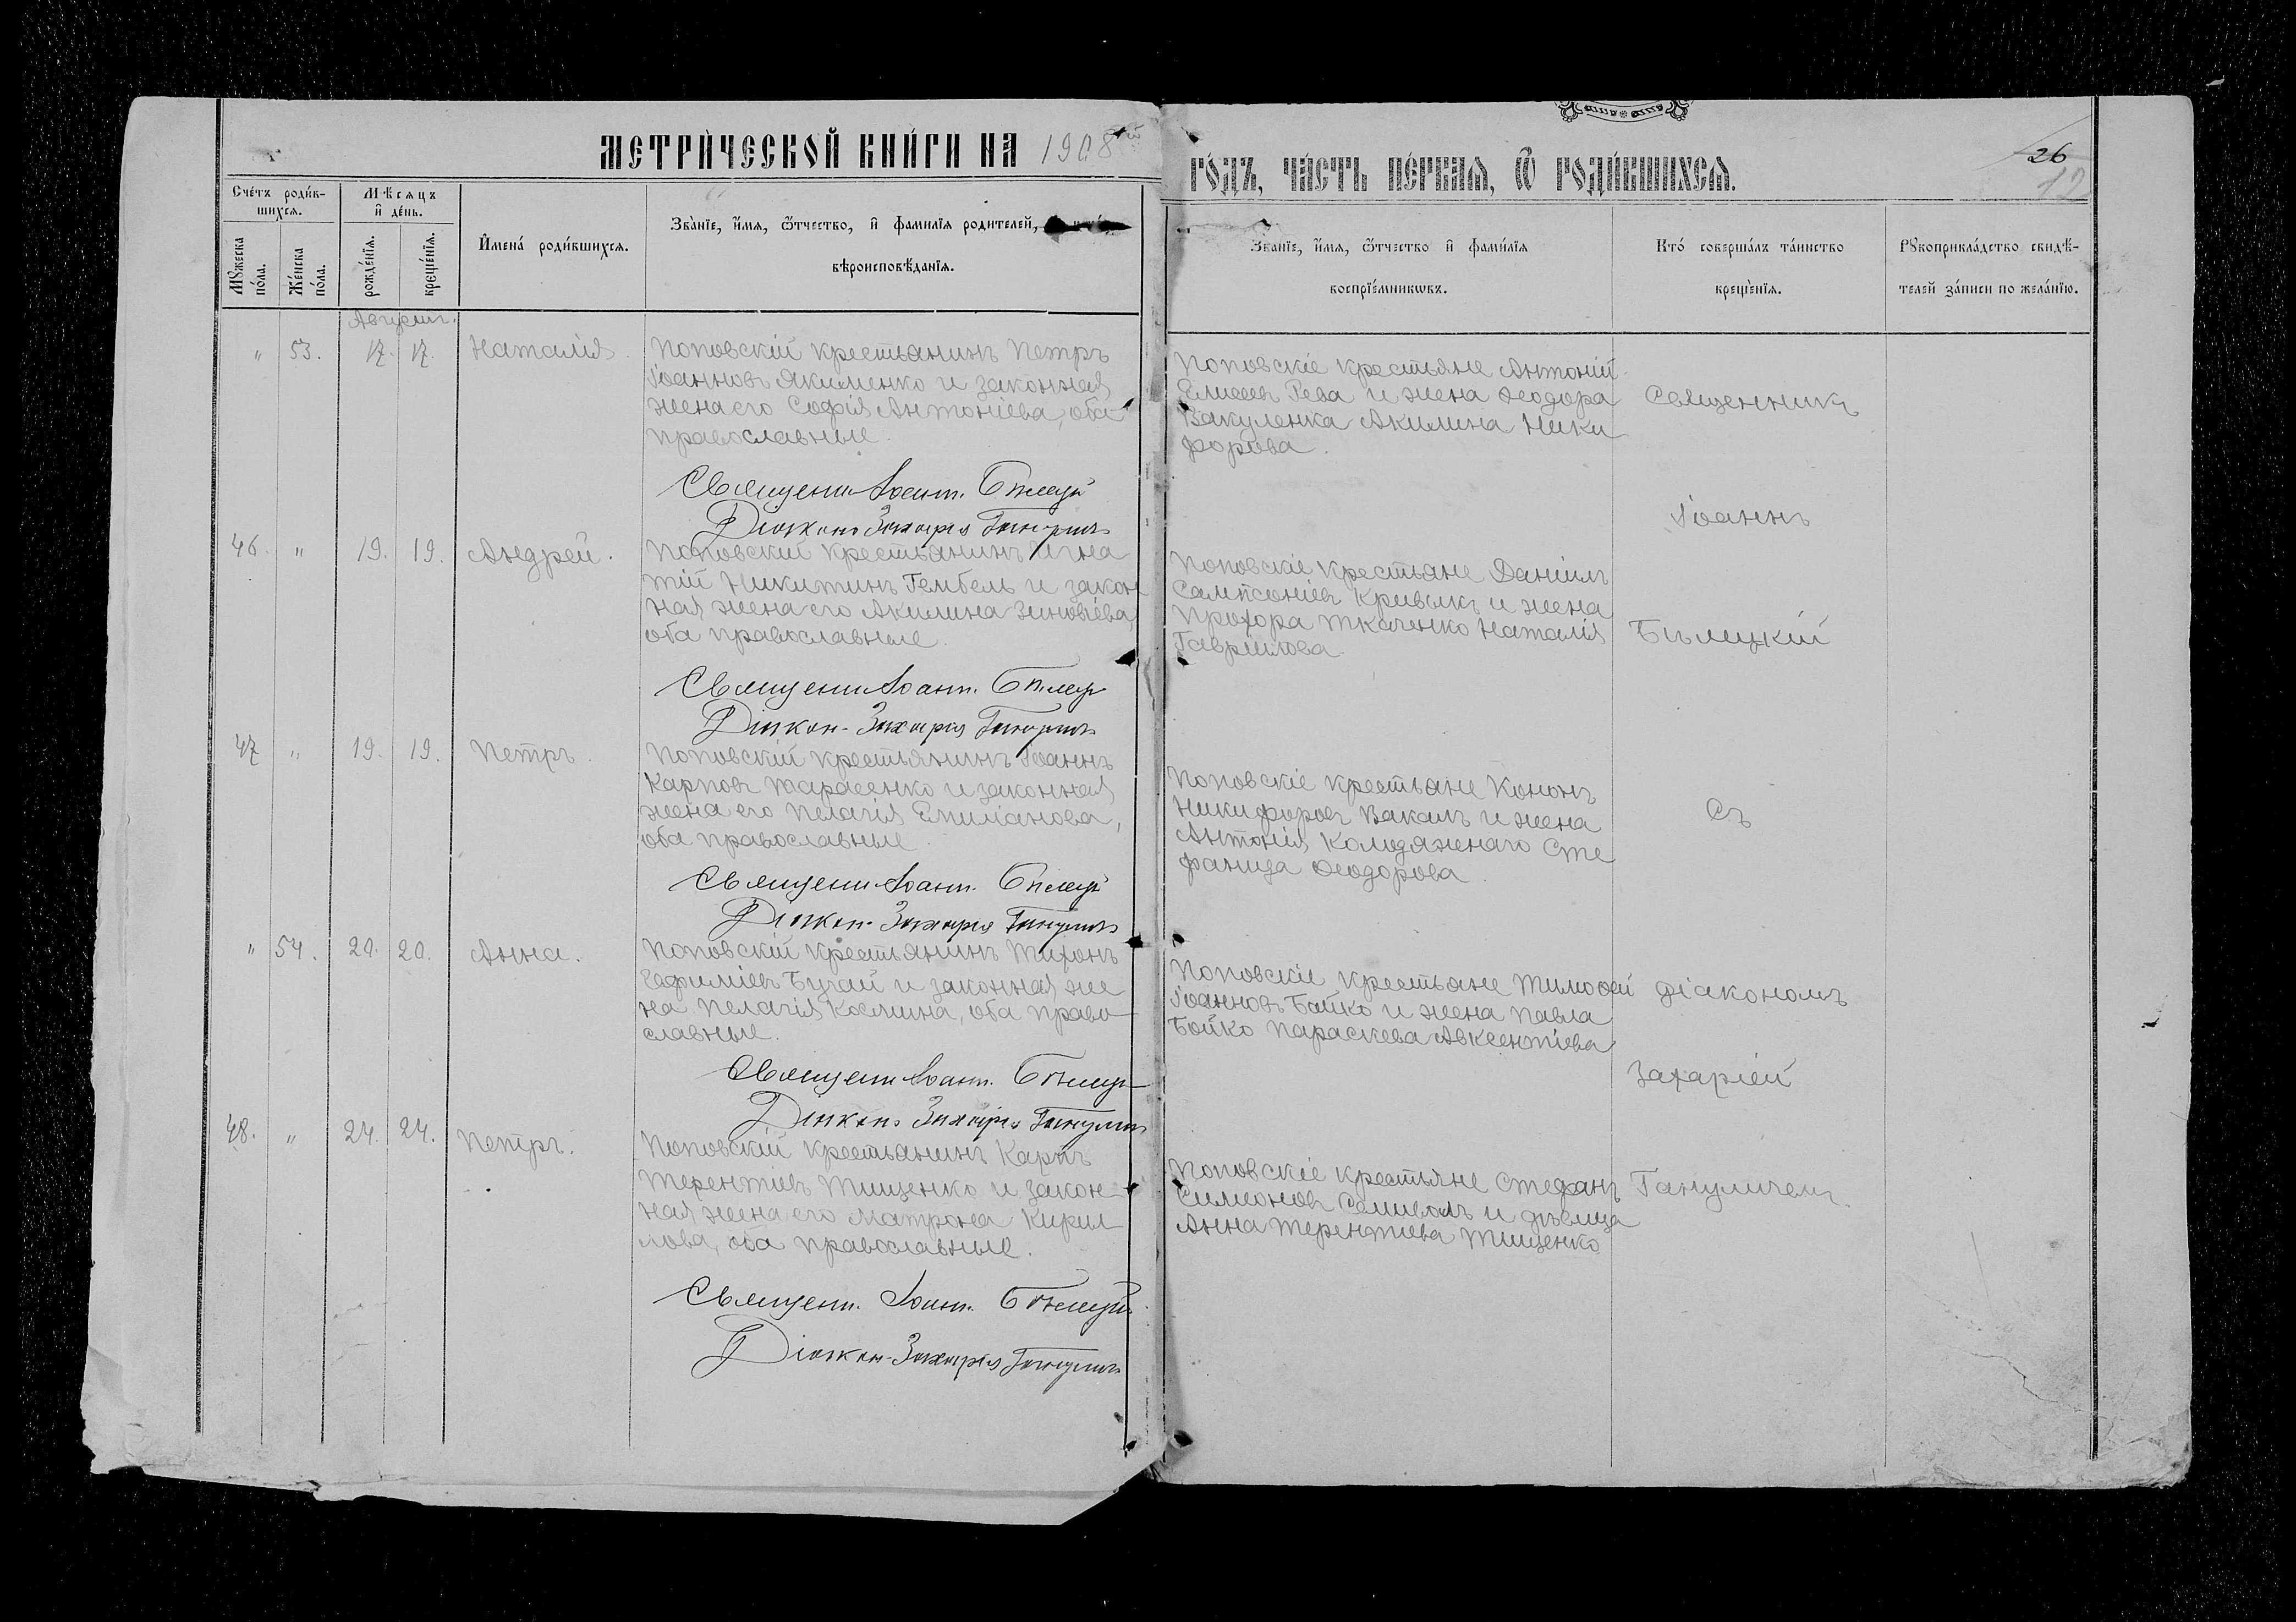 МЕТРИ́ЧЕСКОЙ КНИ́ГИ НА 1908ой
ГО́ДЪ, ЧА́СТЬ ПЕ́РВАЯ, Ѿ РОДИ́ВШИХСЯ.
26
12
Сче́тъ роди́в-
шихся.
Мꙋжеска
по́ла.
Же́нска
по́ла.
Мѣсяцъ
и҆ де́нь.
рожде́нїя.
креще́нїя.
И҆мена́ роди́вшихся.
Зва̀нїе, и҆́мя, ѻ҆́тчество, и҆ фамилїя родителей,
вѣроисповѣ́данїя.
Зва́нїе, и҆́мя, ѻ҆́тчество и҆ фами́лїя
воспрїе́мникѡвъ.
Кто́ соверша́лъ та́инство
креще́нїя.
Рꙋкоприкла́дство свидѣ́-
телей за́писи по жела́нїю.
Августъ.
" 53. 17. 17. Наталія.
Поповскій крестьянинъ Петръ
Іоанновъ Якименко и законная
жена его Софія Антоніева, оба
православные.
Священник Іоанн. Бѣлецкій
Діаконъ Захарія Ганулич
Поповскіе крестьяне Антоній
Елисеевъ Рева и жена Ѳеодора
Вакуленка Акилина Ники
форова.
46. " 19. 19. Андрей.
Поповскій крестьянинъ Игна
тій Никитинъ Гембель и закон
ная жена его Акилина Зиновіева,
оба православные.
Священник Іоанн. Бѣлецкій
Діакон Захарія Ганулич
Поповскіе крестьяне Даніилъ
Сампсоніевъ Кривыкъ и жена
Прохора Ткаченко Наталія
Гавріилова.
47 " 19. 19. Петръ.
Поповскій крестьянинъ Іоаннъ
Карповъ Тарасенко и законная
жена его Пелагія Емиліанова,
оба православные.
Священник Іоанн. Бѣлецкій
Діакон Захарія Ганулич
Поповскіе крестьяне Кононъ
Никифоровъ Вакалъ и жена
Антонія Колодяжнаго Сте
фанида Ѳеодорова.
" 54. 20. 20. Анна.
Поповскій крестьянинъ Тихонъ
Евфиміевъ Бугай и законная же
на Пелагія Космина, оба право-
славные.
Священник Іоанн. Бѣлецкій
Діаконъ Захарія Ганулич
Поповскіе крестьяне Тимоѳей
Іоанновъ Бойко и жена Павла
Бойко Параскева Авксентіева
48. " 24. 24. Петръ.
Поповскій крестьянинъ Карпъ
Терентіевъ Тищенко и закон-
ная жена его Матрона Кирил-
лова, оба православные.
Священ. Іоан. Бѣлецкій
Діакон Захарія Ганулич
Поповскіе крестьяне Стефанъ
Симеоновъ и дѣвица
Анна Терентіева Тищенко
Священникъ
Іоаннъ
Бѣлецкій
Съ
діакономъ
Захаріей
Гануличемъ